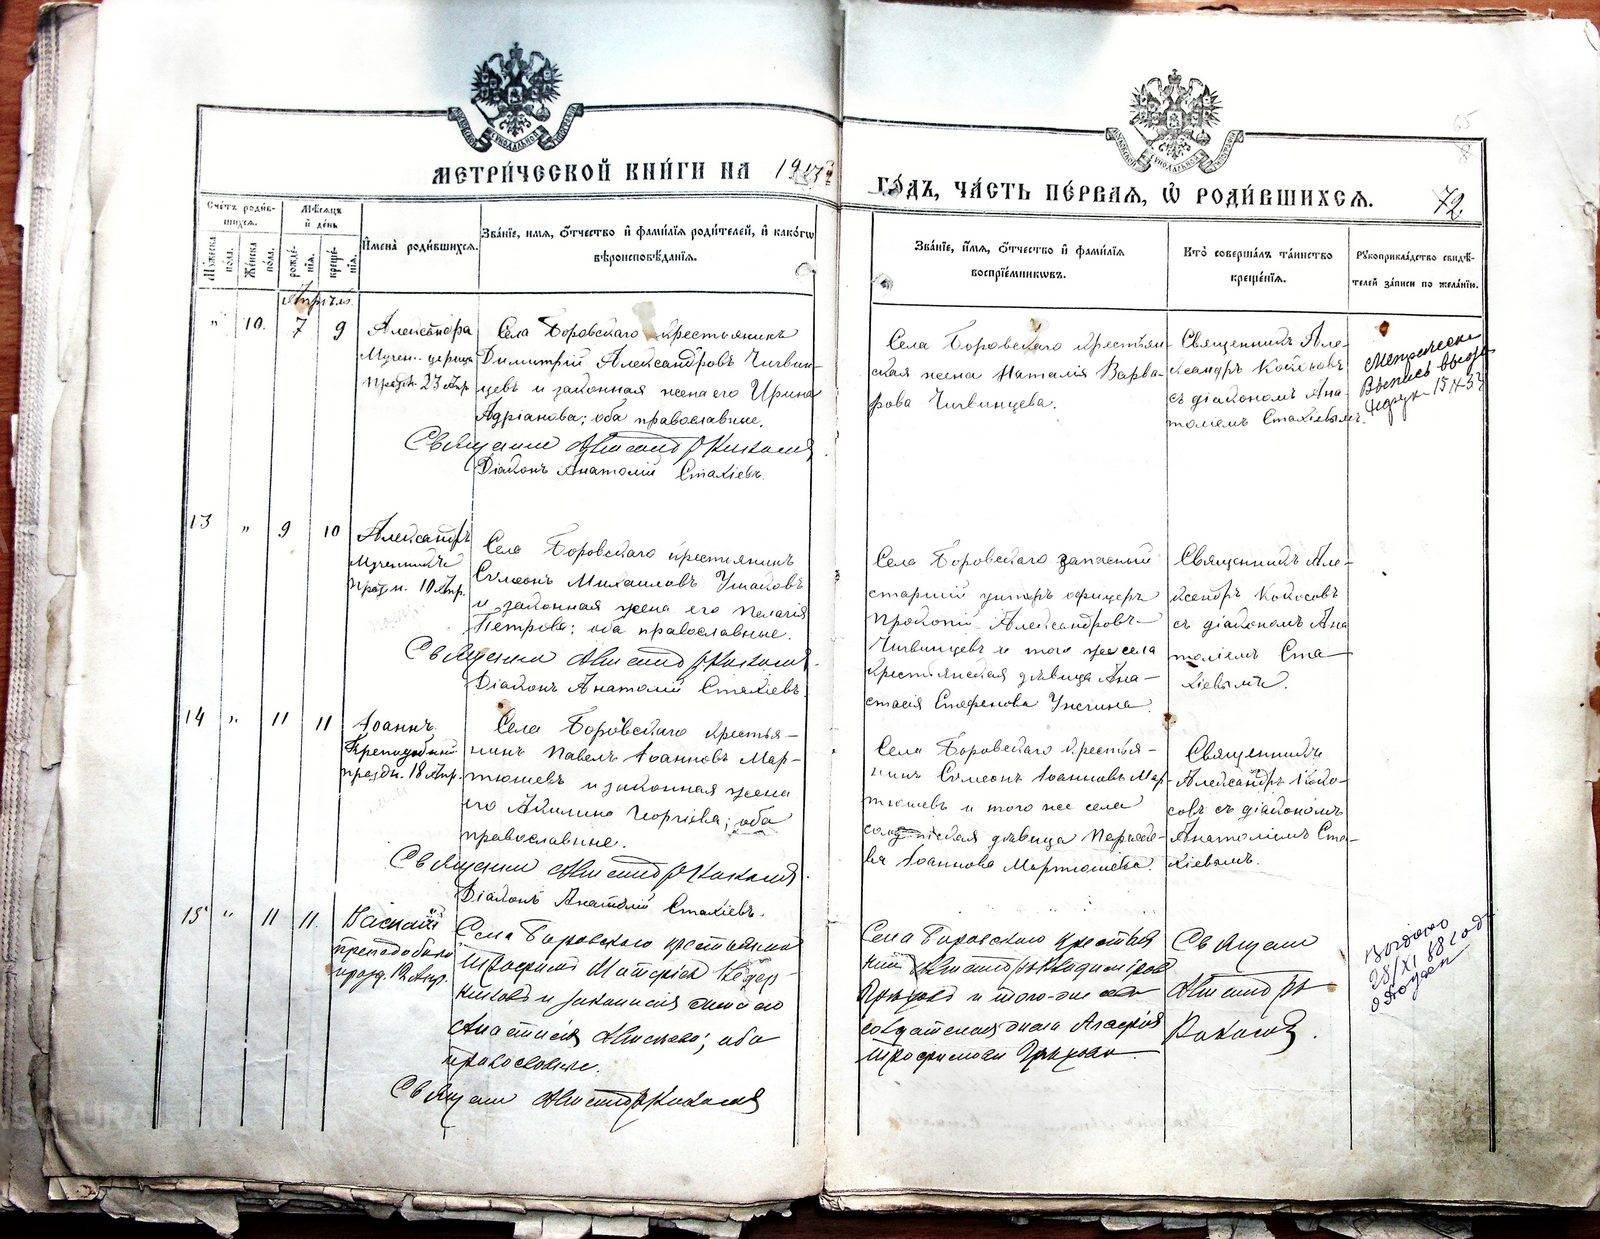 МЕТРИ́ЧЕСКОЙ КНИ́ГИ НА 1917
ГО́ДЪ, ЧА́СТЬ ПЕ́РВАЯ, Ѡ РОДИ́ВШИХСЯ.
72
Сче́тъ роди́в-
шихся.
Му́жеска по́ла.
Же́нска по́ла.
Мѣ́сяцъ
и де́нь
рожде́-
нія.
креще́-
нія.
Имена́ роди́вшихся.
Зва́ніе, и́мя, о́тчество и фами́лія роди́телей, и како́гѡ
вѣроисповѣ́данія.
Зва́ніе, и́мя, о́тчество и фами́лія
воспріе́мниковъ.
Кто́ соверша́лъ та́инство
креще́нія.
Рукоприкла́дство свидѣ́-
телей за́писи по жела́нію.
Апрѣль
" 10. 7 9
Александра
Мучен. царица
Праздн. 23 Апр.
Села Боровскаго крестьянинъ
Димитрій Александровъ Чивин-
цевъ и законная жена его Ирина
Адріанова; оба православные.
Священникъ Александръ Кокосовъ
Діаконъ Анатолій Стахіевъ.
Села Боровскаго крестьян-
ская жена Наталія Варва-
рова Чивинцева.
Священникъ Але-
ксандръ Кокосовъ
съ діакономъ Ана-
толіемъ Стахіевымъ.
Метрическая
Выпись выдана
13 " 9 10
Александръ
Мученикъ
Праздн. 10 Апр.
Села Боровскаго крестьянинъ
Симеонъ Михаиловъ Ушаковъ
и законная жена его Пелагія
Петрова; оба православные.
Священникъ Александръ Кокосовъ
Діаконъ Анатолій Стахіевъ
Села Боровскаго запасный
старшій унтеръ офицеръ
Прокопій Александровъ
Чивинцевъ и того же села
Крестьянская дѣвица Ана-
стасія Стефанова
Священникъ Але-
ксандръ Кокосовъ
съ діакономъ Ана
толіемъ Ста-
хіевымъ.
14 " 11 11
Іоаннъ
Преподобный
праздн. 18 Апр.
Села Боровскаго Крестья-
нинъ Павелъ Іоанновъ Мар-
тюшевъ и законная жена
его Акилина Георгіева; оба
православные.
Священникъ Александръ Кокосовъ
Діаконъ Анатолій Стахіевъ.
Села Боровскаго Крестья-
нинъ Симеонъ Іоанновъ Мар-
тюшевъ и того же села
солдатская дѣвица Параске-
ва Іоаннова Мартюшева.
Священникъ
Александръ Коко-
совъ съ діакономъ
Анатоліемъ Ста-
хіевымъ.
15 " 11 11
Василій
преподобный
празд. 12 Апр.
Села Боровскаго крестьянинъ
и законная жена его
Анастасія; оба
православные.
Священникъ Александръ Кокосовъ
Села Боровскаго крестья
нинъ Александръ Владиміровъ
и того-же
солдатская жена
Священникъ
Александръ
Кокосовъ.
Выдано
28/XI 68 год